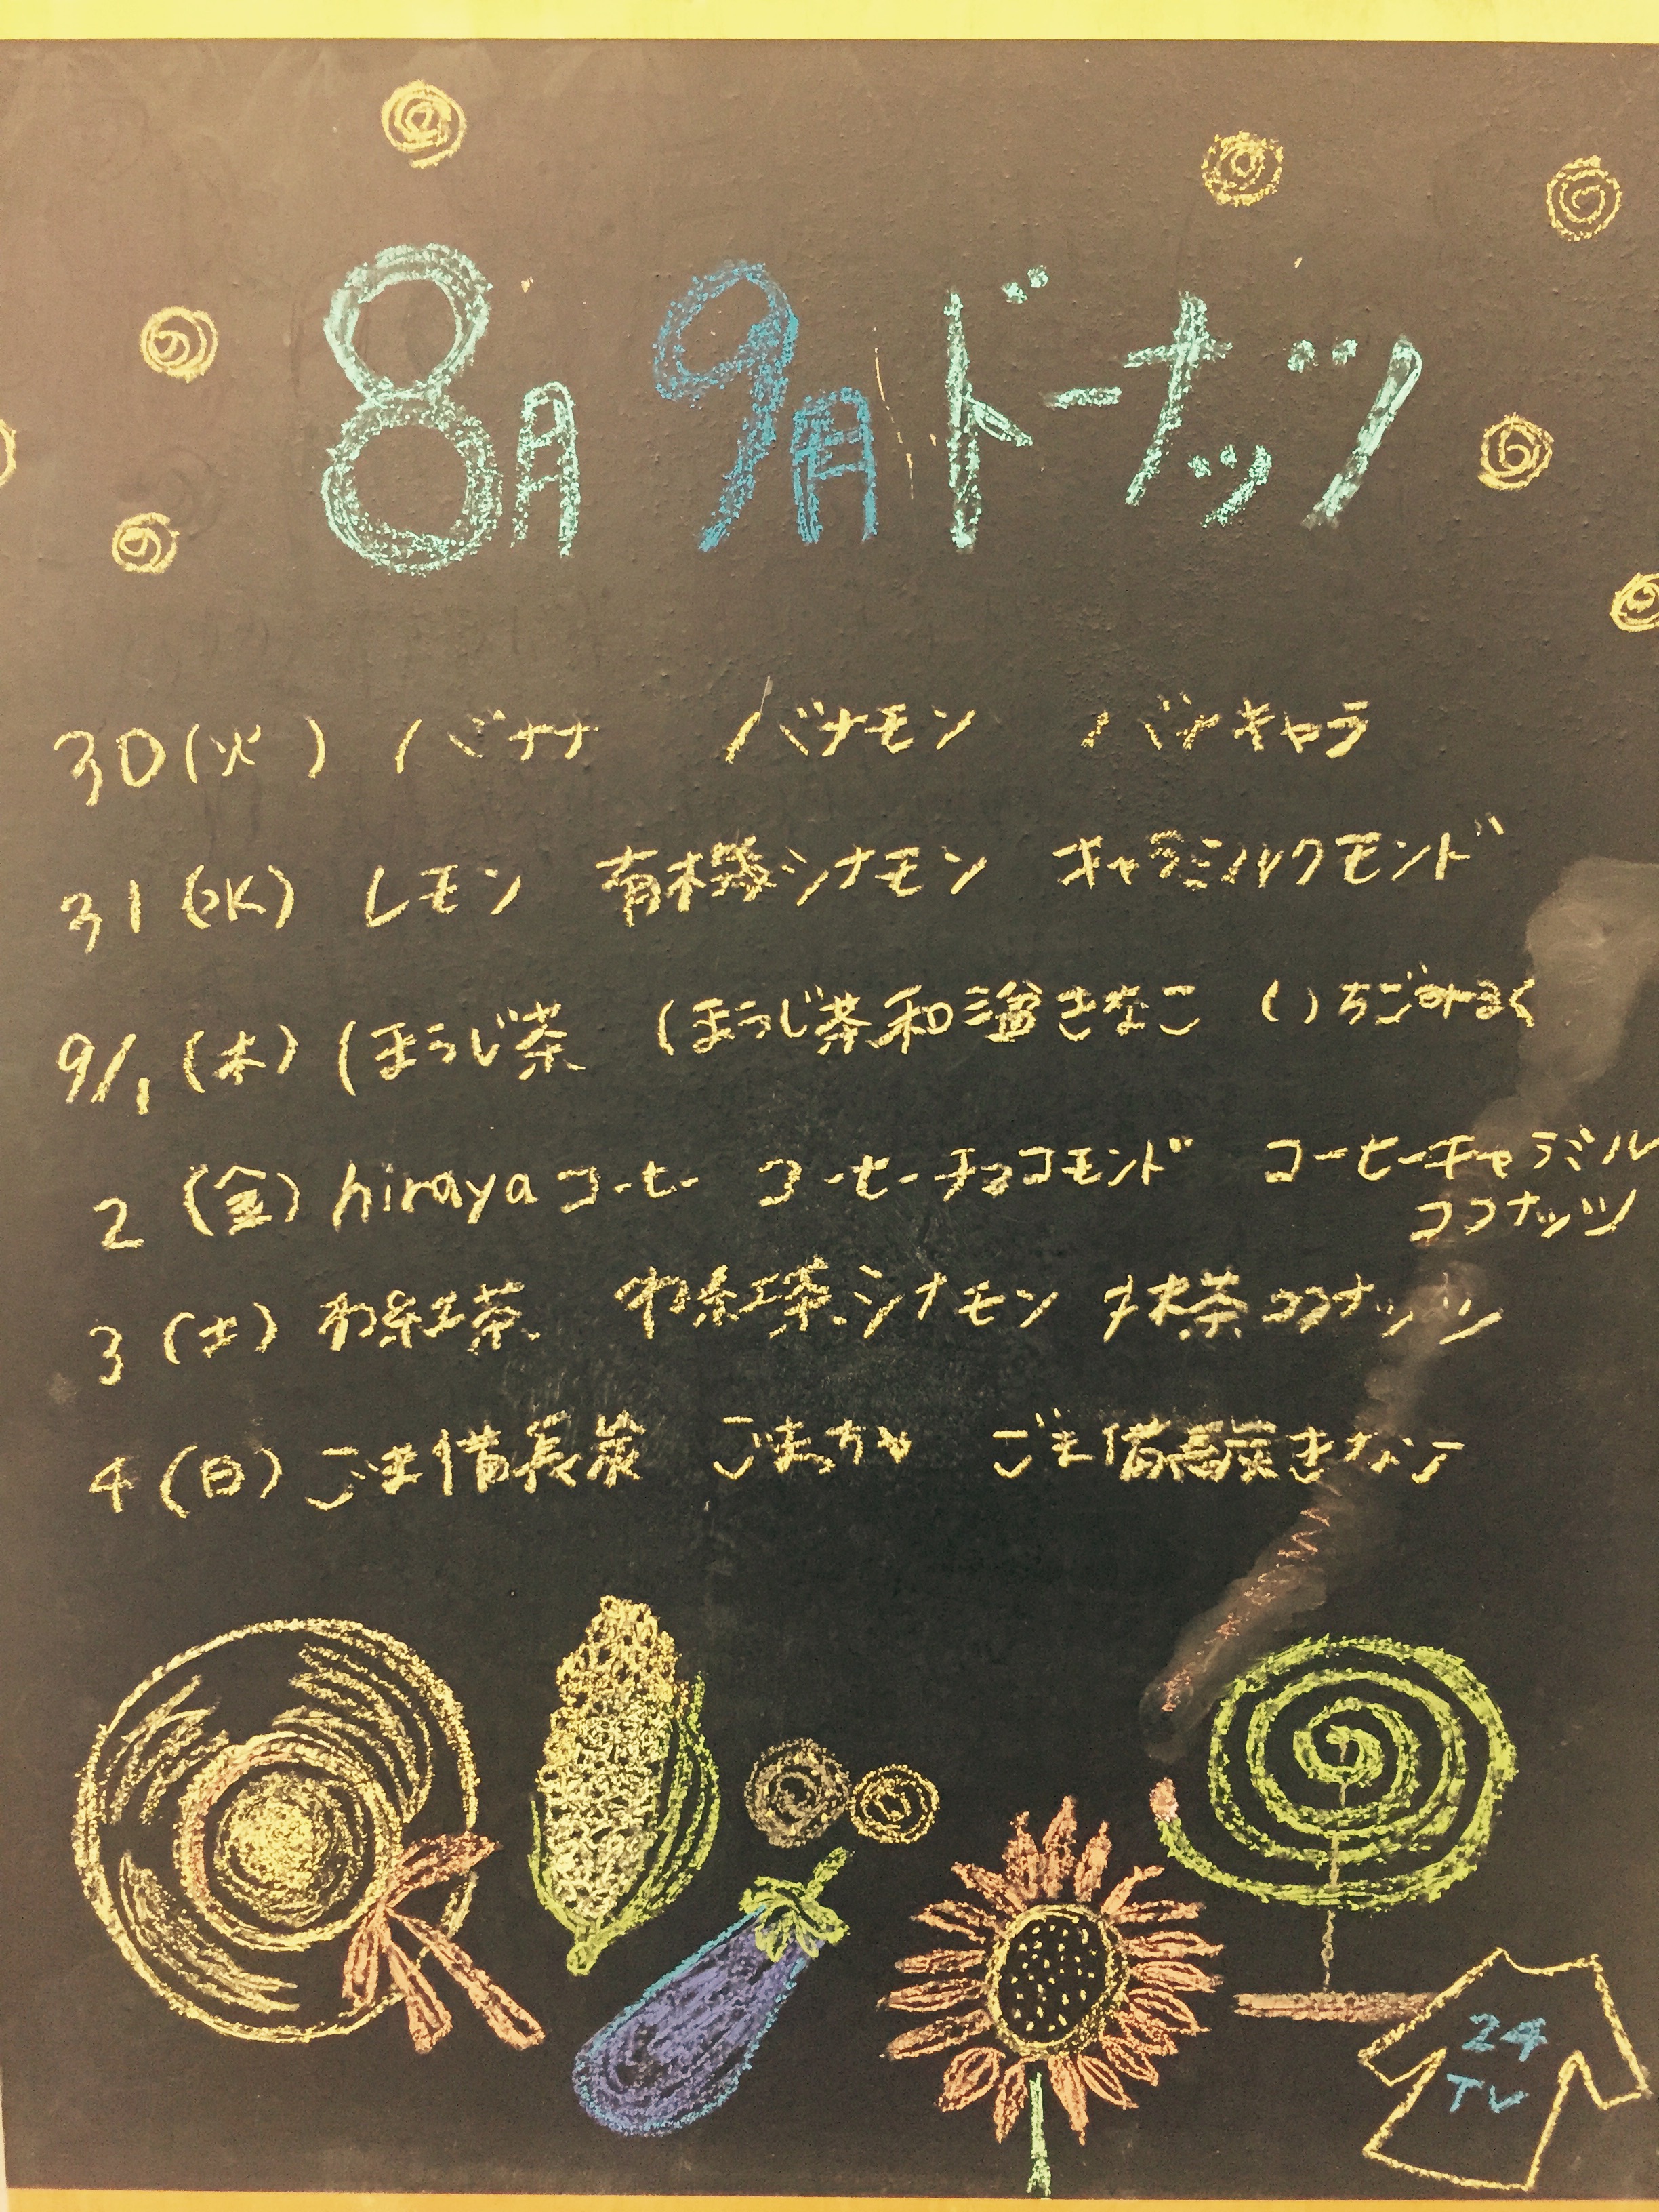 8月 9月 ドーナッツ
30(火) バナナ バナモン バナキャラ
31(水) レモン 有機シナモン キャラミルクモンド
9/1(木) ほうじ茶 ほうじ茶和三盆きなこ いちごみるく
2(金) hirayaコーヒー コーヒーチョコモンド コーヒーキャラミル
ココナッツ
3(土) 和紅茶 和紅茶シナモン 抹茶ココナッツ
4(日) ごま備長炭 ごまっちゃ ごま備長炭きなこ
24
TV